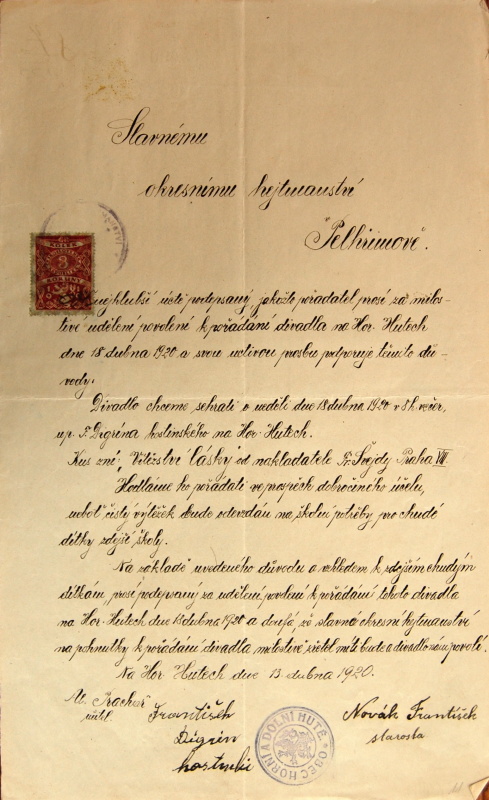 Slavnému
okresnímu hejtmanství
v Pelhřimově.
KOLEK
3
V nejhlubší úctě podepsaný, jakožto pořadatel prosí za milos-
tivé udělení povolení k pořádání divadla na Hor. Hutech
dne 18 dubna 1920 a svou uctivou prosbu podporuje těmito dů-
vody.
Divadlo chceme sehráti v neděli dne 18 dubna 1920 v 8 h. večer,
u p. F. Digrína hostinského na Hor. Hutech.
Kus zní „Vítězství lásky" od nakladatele Fr. Švejdy Praha VII
Hodláme ho pořádati ve prospěch dobročiného účelu,
neboť čistý výtěžek bude odevzdán na školní potřeby pro chudé
dítky zdejší školy.
Na základě uvedeného důvodu a vzhledem k zdejším chudým
dítkám, prosí podepsaný za udělení povolení k pořádání tohoto divadla
na Hor. Hutech dne 18 dubna 1920 a doufá, že slavné okresní hejtmanství
na pohnutky k pořádání divadla milostivě zřetel míti bude a divadlo nám povolí.
Na Hor. Hutech dne 13. dubna 1920.
Al. Prachař František Novák František
učitel. Digrin starosta
hostinski
OBEC HORNÍ A DOLNÍ HUTĚ